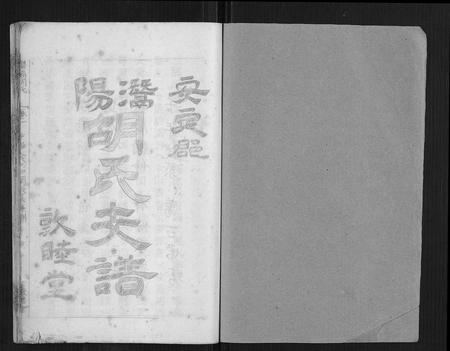 安定郡
潛陽
胡氏支譜
敦睦堂